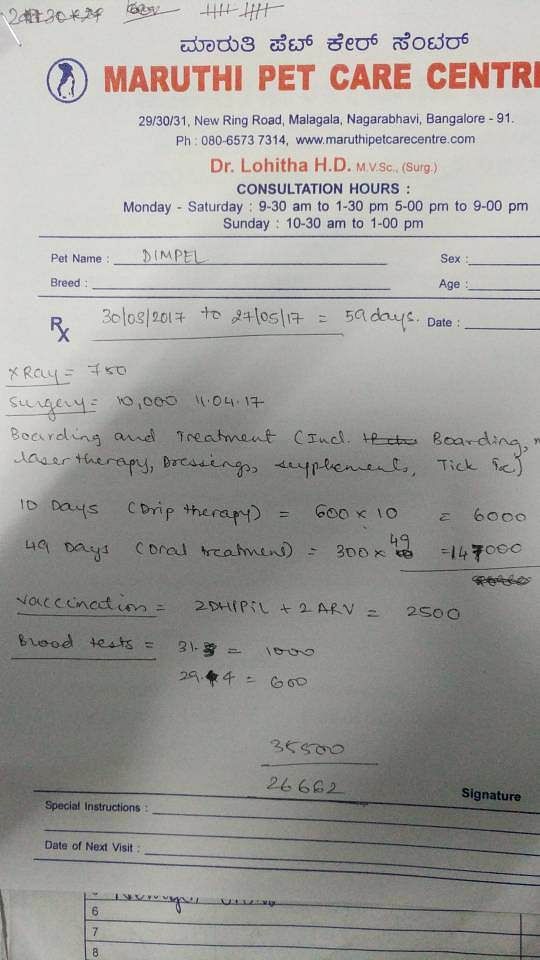 ಮಾರುತಿ ಪೆಟ್ ಕೇರ್ ಸೆಂಟರ್
MARUTHI PET CARE CENTR
29/30/31, New Ring Road, Malagala, Nagarabhavi, Bangalore - 91.
Ph : 080-6573 7314, www.maruthipetcarecentre.com
Dr. Lohitha H.D. M.V.Sc., (Surg.)
CONSULTATION HOURS :
Monday - Saturday : 9-30 am to 1-30 pm 5-00 pm to 9-00 pm
Sunday : 10-30 am to 1-00 pm
Pet Name : DIMPEL Sex :
Breed : Age :
Rx 30/03/2017 to 27/05/17 = 59 days. Date :
XRay = 750
Surgery = 10,000 11.04.17
Boarding and Treatment (Incl. Boarding,
laser therapy, Dressings, supplements, Tick
10 Days (Drip therapy) = 600 x 10 = 6000
49 Days (Oral treatment) = 300 x 49 = 147000
Vaccination = 2DHPPiL + 2 ARV = 2500
Blood tests = 31.3 = 1000
29.4 = 600
35500
26662
Signature
Special Instructions :
Date of Next Visit :
6
7
8